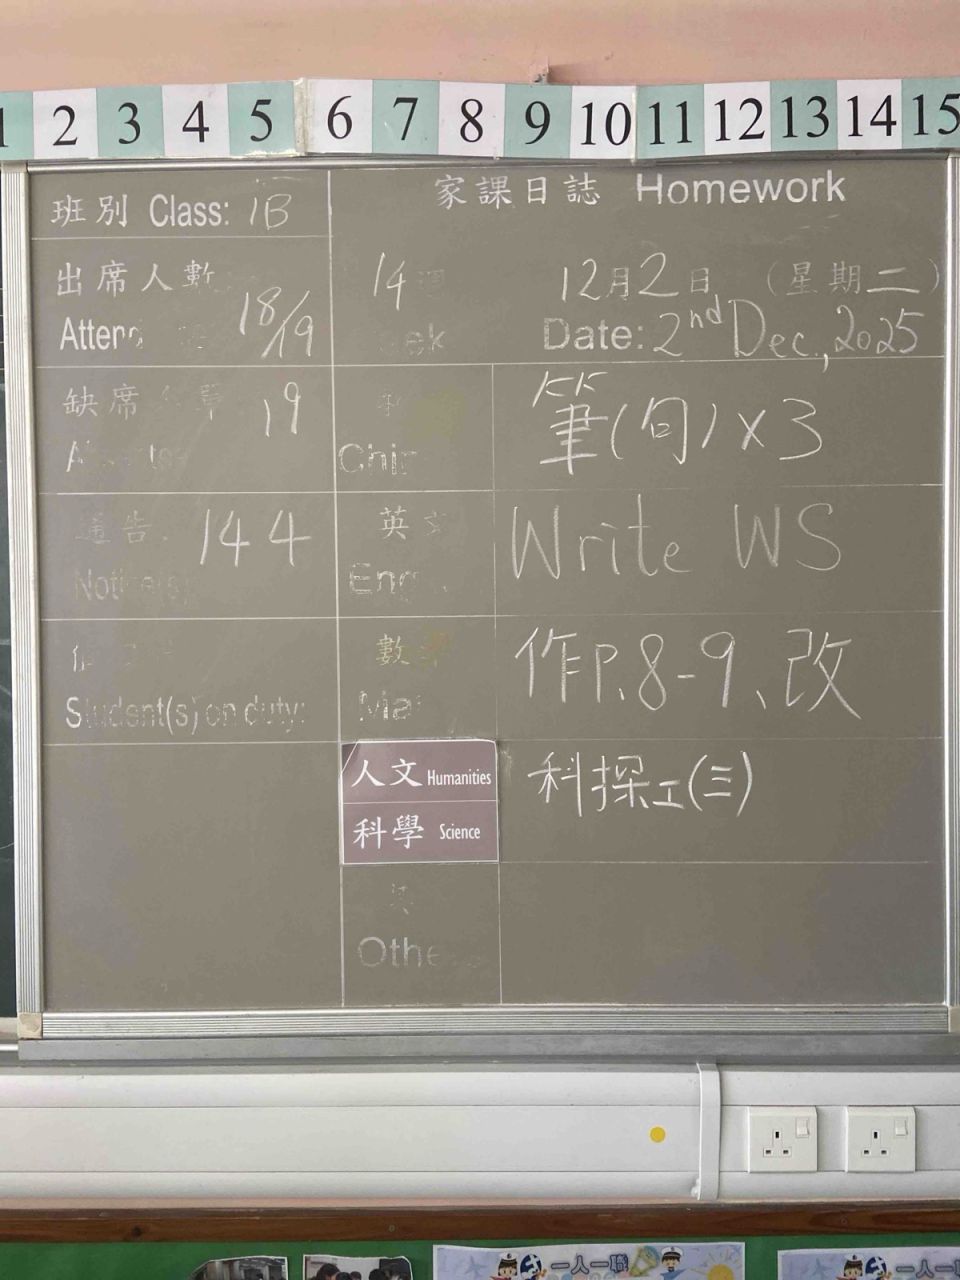 1 2 3 4 5 6 7 8 9 10 11 12 13 14 15
班別 Class: 1B
家課日誌 Homework
出席人數
Attend
18/19
14
12月2日 (星期二)
Date: 2nd Dec., 2025
缺席
19
Chin
筆(句)x3
通告
Notice(s)
144
英文
Eng
Write WS
Student(s) on duty:
數
Ma
作P.8-9、改
人文 Humanities
科學 Science
科探工(三)
Othe
一人一職